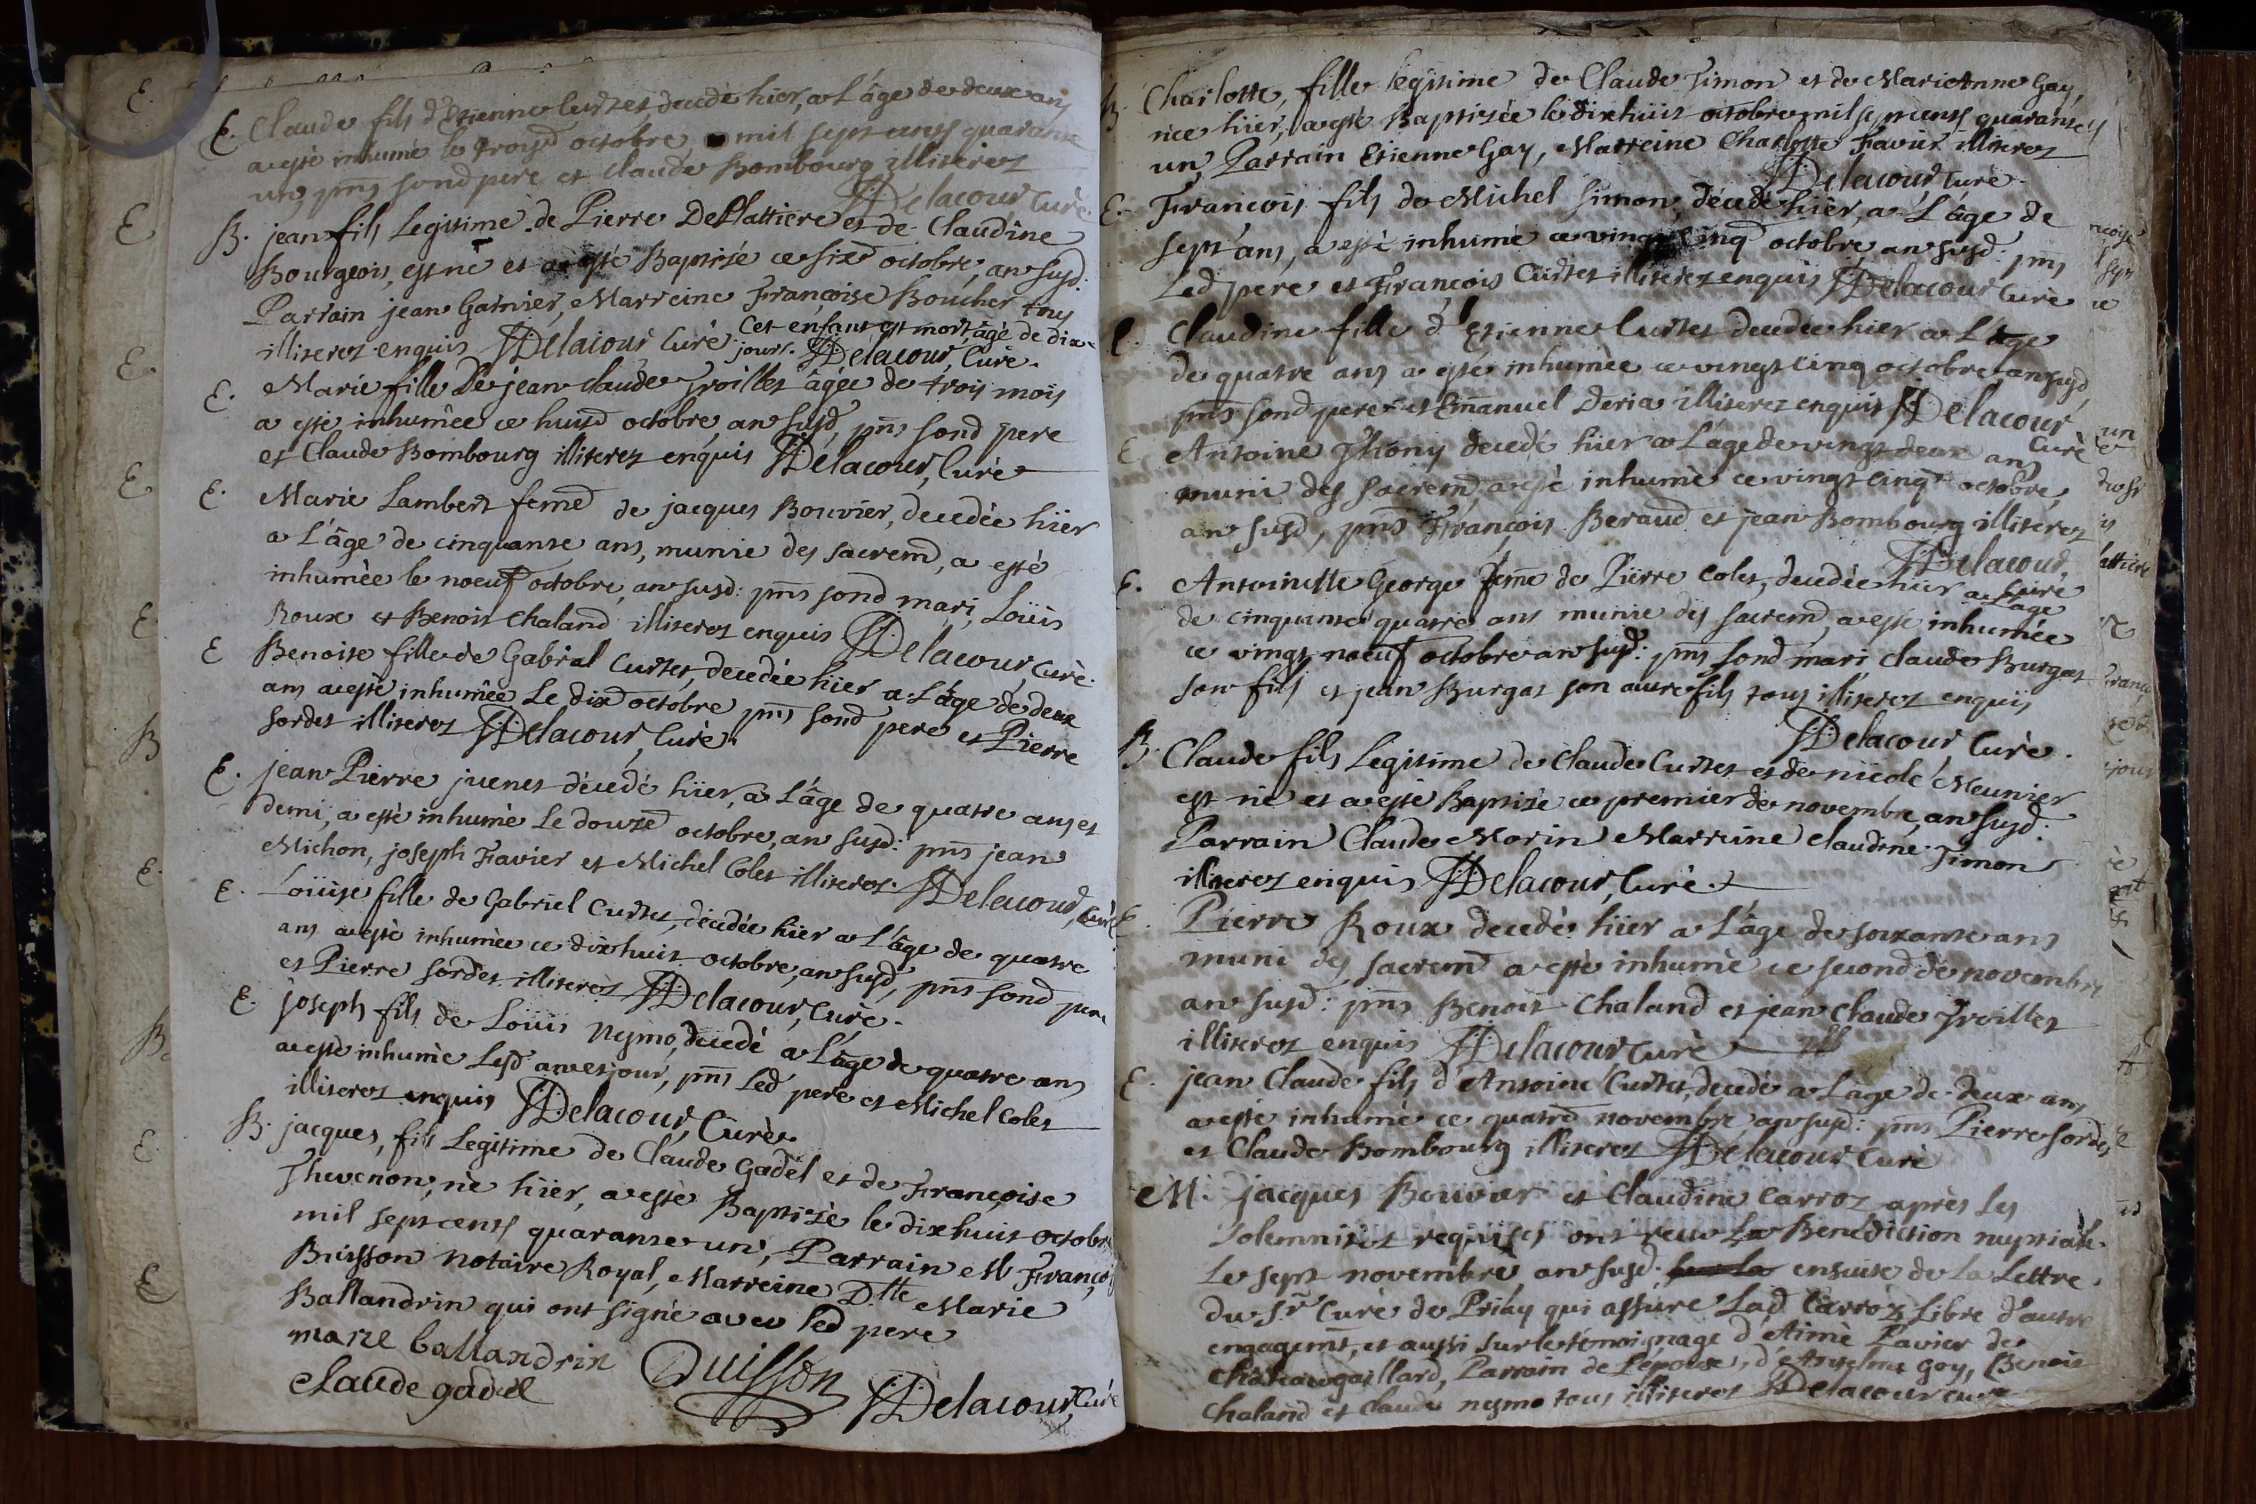 E. Claude fils d'Etienne Curtet, decedé hier, a L'âge de deux ans
a esté inhumé le troisd octobre mil sept cents quarante
un, pnts sond pere et Claude Bombourg illiterez
Delacour Curé.
B. jean fils Legitime de Pierre Deplattiere et de Claudine
Bourgeois, est né et a esté Baptisé ce sixd octobre, an susd:
Parrain jean Garnier, Marreine Françoise Boucher tous
illiterez enquis Delacour Curé. Cet enfant est mort âgé de dix
jours. Delacour, Curé.
E. Marie fille De jean claude Troillet âgée de trois mois
a esté inhumée ce huisd octobre, an susd, pnts sond pere
et Claude Bombourg illiterez enquis Delacour, Curé
E. Marie Lambert femed de jacques Bouvier, decedée hïer
a L'âge de cinquante ans, munie des sacremd, a esté
inhumée le noeuf octobre, an susd: pnts sond mari, Loüis
Roux et Benoit Chaland illiterez enquis Delacour, Curé.
E Benoite fille de Gabriel Curtet, decedée hïer a L'âge de deux
ans a esté inhumée Le dixd octobre pnts sond pere et Pierre
Sordet illiterez Delacour, Curé.
E. jean Pierre juenet décedé hïer, a L'âge de quatre ans et
demi, a esté inhumé Le douzed octobre, an susd: pnts jean
Michon, joseph Favier et Michel Colet illiterez. Delacour, Curé
E. Loüise fille de Gabriel Curtet, decedée hïer a L'âge de quatre
ans a esté inhumée ce dixhuit octobre, an susd, pnts sond pere
et Pierre Sordet illiterez Delacour, Curé.
E. joseph fils de Loüis Nesmo, decedé a L'âge de quatre ans
a esté inhumé Lesd an et jour, pnts Led pere et Michel Colet
illiterez enquis Delacour, Curé.
B. jacques, fils Legitime de Claude Gadel et de Françoise
Thevenon, né hïer, a esté Baptisé le dixhuit octobre
mil sept cents quarante un, Parrain M François
Buisson notaire Royal, Marreine Dlle Marie
Ballandrin qui ont signé avec led pere
marie ballandrin Buisson
claude gadel Delacour, Curé
B. Charlotte, fille legitime de Claude Timon et de Marie Anne Gay,
née hïer, a esté Baptisée le dixhuit octobre mil sept cents quarante
un, Parrain Etienne Gay, Marreine Charlotte Favier illiterez
Delacour Curé.
E. François fils de Michel Simon, décedé hïer, a L'âge de
sept ans, a esté inhumé ce vingt cinq octobre, an susd: pnts
Led pere et François Curtet illiterez enquis Delacour Curé
E. Claudine fille d'Etienne Curtet decedée hïer a L'âge
de quatre ans a esté inhumée ce vingt cinq octobre an susd,
pnts sond pere et Emanuel Deria illiterez enquis Delacour
Curé
E Antoine Thony decedé hïer a L'âge de vingt deux ans
muni des sacremd, a esté inhumé ce vingt cinq octobre,
an susd, pnts François Beraud et jean Bombourg illiterez
Delacour, Curé
E. Antoinette George feme de Pierre Colet, decedée hïer a L'âge
de cinquante quatre ans munie des sacremd, a esté inhumée
ce vingt noeuf octobre an susd: pnts sond mari Claude Burgat
son fils et jean Burgat son autre fils tous illiterez enquis
Delacour Curé.
B. Claude fils Legitime de Claude Curtet et de nicole Meunier
est né et a esté Baptisé ce premier de novembre, an susd:
Parrain Claude Morin Marreine claudine Timon
illiterez enquis Delacour, Curé.
E. Pierre Roux decedé hïer a L'âge de soixante ans
muni des sacremd a esté inhumé ce second de novembre
an susd: pnts Benoit Chaland et jean Claude Troillet
illiterez enquis Delacour Curé
E. jean Claude fils d'Antoine Curtet, decedé a L'age de deux ans
a esté inhumé ce quatred novembre an susd: pnts Pierre Sordet
et Claude Bombourg illiterez Delacour Curé
M. jacques Bouvier et Claudine Carroz après les
solemnitez requises ont receu La Benediction nuptiale.
Le sept novembre an susd: ensuite de la Lettre
du Sr Curé de Priay qui assure Lad Carroz Libre d'autre
engagemt, et aussi sur le témoignage d'Aimé Pavier de
Chateaugaillard, Parrain de L'epouse, d'Anselme Goy, Benoit
Chaland et Claude nesmo tous illiterez Delacour curé